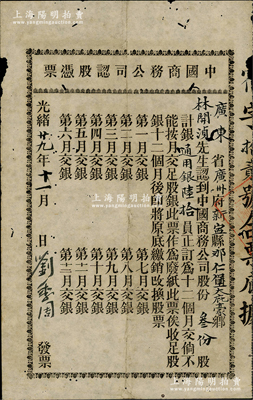 上海陽明拍賣
中國商務公司認股憑票
廣東省廣州府新寧縣那仁堡
林開湞先生認到中國商務公司股份叁份股
計銀通用銀陸拾員正訂為十二個月交倘不
能按月交足股銀此票作為廢紙此票俟收足股
銀十二個月後即將原底繳銷改換股票
第一月交銀 第七月交銀
第二月交銀 第八月交銀
第三月交銀 第九月交銀
第四月交銀 第十月交銀
第五月交銀 第十一月交銀
第六月交銀 第十二月交銀
光緒廿九年十一月 日 發票